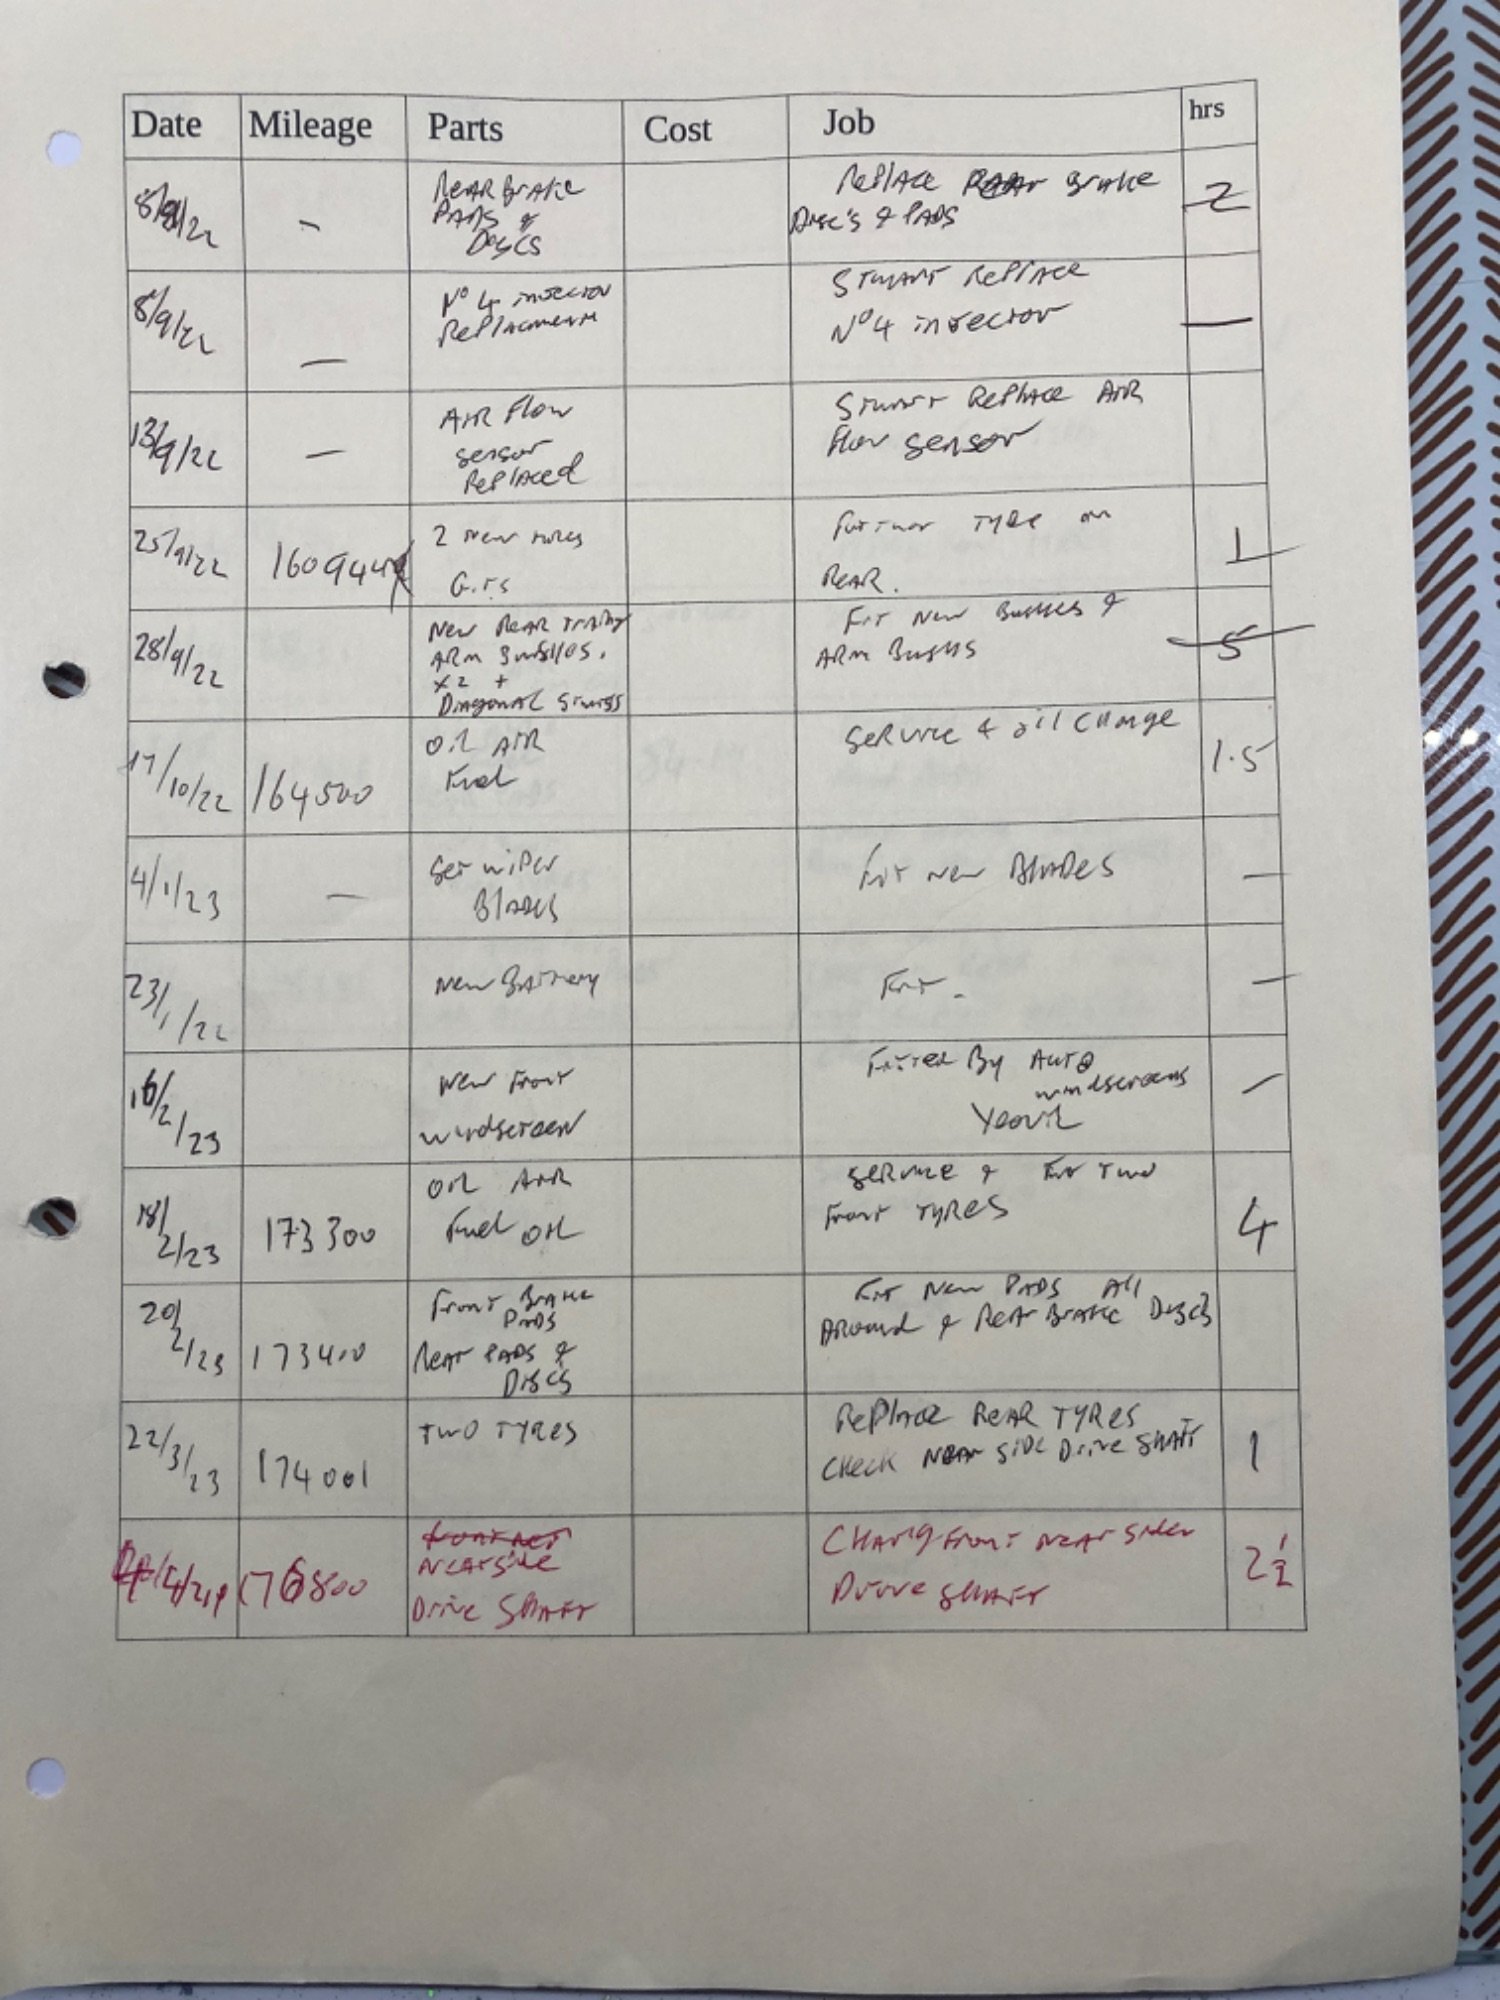 Date Mileage Parts Cost Job hrs
8/8/22 — Rear Brake Replace Rear Brake 2
Pads & Disc's & Pads
Discs
8/9/22 — No 4 injector Stuart Replace —
Replacment No 4 injector
13/9/22 — Air Flow Stuart Replace Air
sensor Flow sensor
Replaced
25/9/22 2 New tyres Fit two Tyre on 1
G.T.S Rear.
28/9/22 New Rear Trailing Fit New Bushes & 5
Arm Bushes. Arm Bushs
x2 +
Diagonal
17/10/22 164500 Oil Air Service & oil change 1.5
Fuel
4/1/23 — Set wiper Fit new Blades —
Blades
23/1/22 New Battery Fit. —
16/2/23 New Front Fitted By Auto —
windscreen windscreens
Yeovil
18/2/23 173300 Oil Air Service & Fit Two 4
Fuel Oil Front Tyres
20/2/23 173400 Front Brake Fit New Pads All
Pads Around & Rear Brake Discs
Rear Pads &
Disc's
22/3/23 174001 Two Tyres Replace Rear Tyres 1
Check Near Side Drive Shaft
176800 Nearside Chang Front Near Side 2½
Drive Shaft Drive Shaft